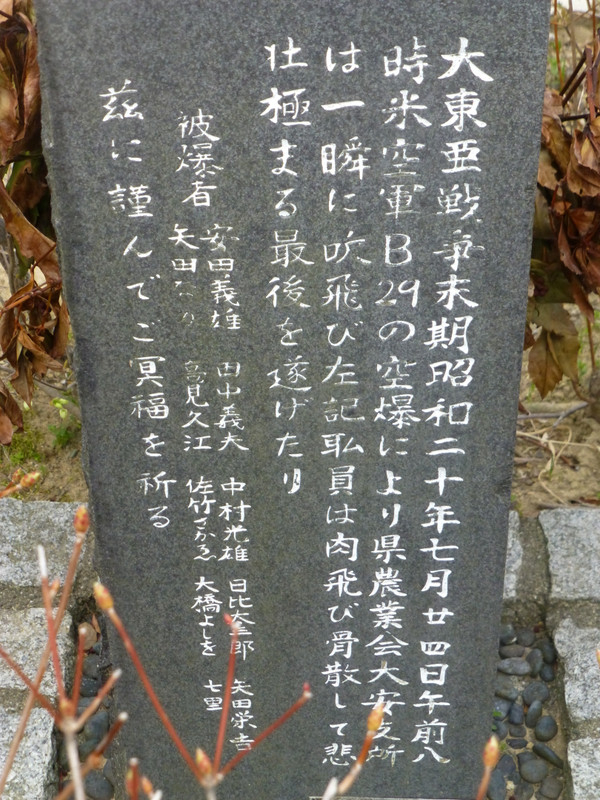 大東亜戦争末期昭和二十年七月廿四日午前八
時米空軍B29の空爆により県農業会大安支所
は一瞬に吹飛び左記職員は肉飛び骨散して悲
壮極まる最後を遂げたり
被爆者 安田義雄 田中義夫 中村光雄 日比太三郎 矢田栄吉
矢田 高見久江 佐竹さかゑ 大橋よしを 七里
茲に謹んでご冥福を祈る